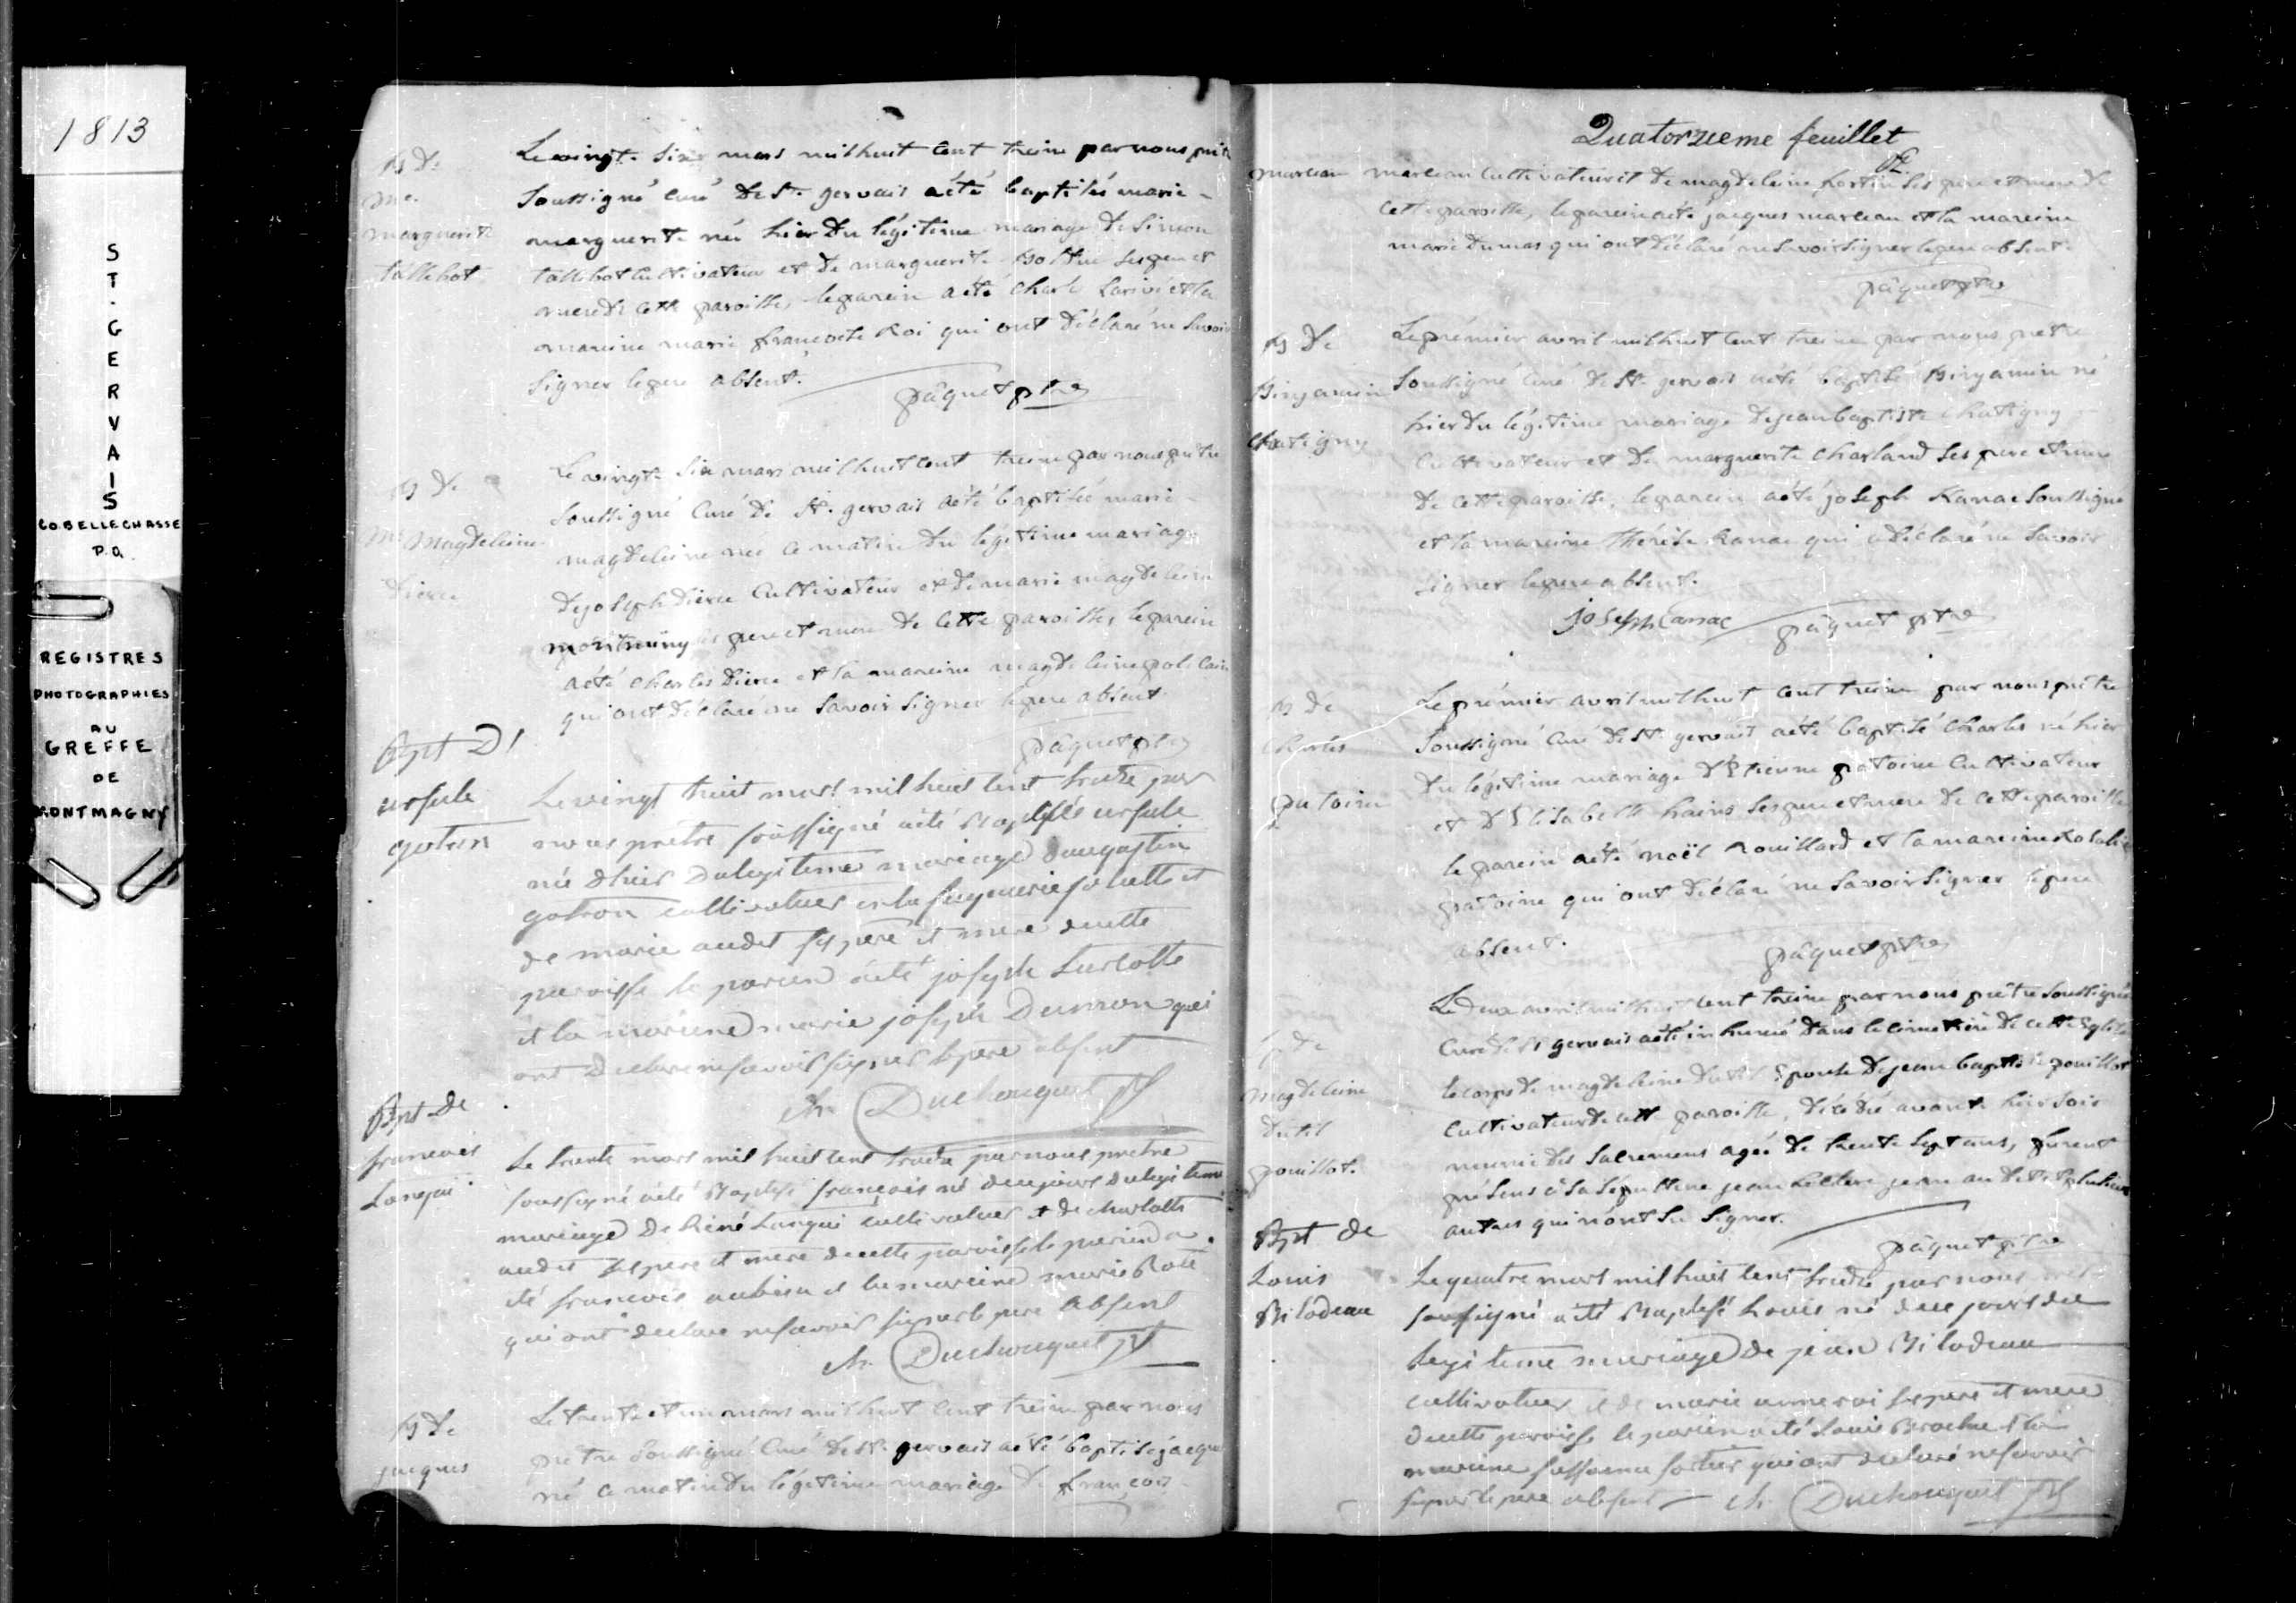 1813
ST. GERVAIS
CO. BELLECHASSE
P.Q.
REGISTRES
PHOTOGRAPHIES
AU
GREFFE
DE
MONTMAGNY
B de
me.
marguerite
tallbot
Le vingt-six mars mil huit cent treize par nous prêtre
soussigné curé de St. gervais a été baptisée marie-
marguerite née hier du légitime mariage de simon
tallbot cultivateur et de marguerite ses pere et
mere de cette paroisse, le parein a été Charle Larivé et la
mareine marie françoise Roi qui ont déclaré ne savoir
signer le pere absent.
pâquet ptre
B de
me Magdeleine
Dieren
Le vingt-six mars mil huit cent treize par nous prêtre
soussigné curé de St. gervais a été baptisée marie-
magdeleine née ce matin du légitime mariage
de joseph cultivateur et de marie magdeleine
montminy ses pere et mere de cette paroisse, le parein
a été charles et la mareine magdeleine
qui ont déclaré ne savoir signer le pere absent.
pâquet ptre
Bpt D'
ursule
gotron
Le vingt huit mars mil huit cent treize par
nous pretre soussigné a été Baptisée ursule
née d'hier du legitime mariage d'augustin
gotron cultivateur et
de marie audet ses pere et mere de cette
paroisse le parein a été joseph Turcotte
et la mareine marie joseph qui
ont declare ne savoir signer le pere absent
ch. Duchouquet Ptre
Bpt de
francois
Langui
Le trente mars mil huit cent treize par nous pretre
soussigné a été Baptisé francois né du legitime
mariage de Réné Langui cultivateur et de charlotte
audet ses pere et mere de cette paroisse le parein a
été francois aubin et la mareine marie
qui ont declare ne savoir signer le pere absent
ch. Duchouquet Ptre
B de
jacques
Le trente et un mars mil huit cent treize par nous
prêtre soussigné curé de St. gervais a été baptisé jacques
né ce matin du légitime mariage de françois
Quatorzieme feuillet
marceau
marceau cultivateur et de magdeleine fortin ses pere et mere de
cette paroisse, le parein a été jacques marceau et la mareine
marie dumas qui ont déclaré ne savoir signer le pere absent.
pâquet ptre
B de
Binjamin
Chatigny
Le prémier avril mil huit cent treize par nous prêtre
soussigné curé de St. gervais a été baptisé Binjamin né
hier du légitime mariage de jean baptiste Chatigny
cultivateur et de marguerite Charland ses pere et mere
de cette paroisse, le parein a été joseph Kanac soussigné
et la mareine thérèse Kanac qui a déclaré ne savoir
signer le pere absent.
joseph Canac pâquet ptre
B de
Charles
patoine
Le prémier avril mil huit cent treize par nous prêtre
soussigné curé de St. gervais a été baptisé Charles né hier
du légitime mariage d'Etienne patoine cultivateur
et d'Elisabeth hains ses pere et mere de cette paroisse
le parein a été noël Rouillard et la mareine Rosalie
patoine qui ont déclaré ne savoir signer le pere
absent.
pâquet ptre
de
Magdeleine
dutil
pouillot.
Le deux avril mil huit cent treize par nous prêtre soussigné
curé de St gervais a été inhumé dans le cimetiere de cette Eglise
le corps de magdeleine dutil Epouse de jean baptiste pouillot
cultivateur de cette paroisse, décédée avant hier soir
munie des sacremens agée de trente sept ans, furent
présens à sa sépulture jean Leclerc jean audet et plusieurs
autres qui n'ont su signer.
pâquet ptre
Bpt de
Louis
Bilodeau
Le quatre mars mil huit cent treize par nous
soussigné a été Baptisé Louis né du
legitime mariage de jean Bilodeau
cultivateur et de marie anne roi ses pere et mere
de cette paroisse le parein a été Louis et la
mareine qui ont declaré ne savoir
signer le pere absent ch. Duchouquet Ptre